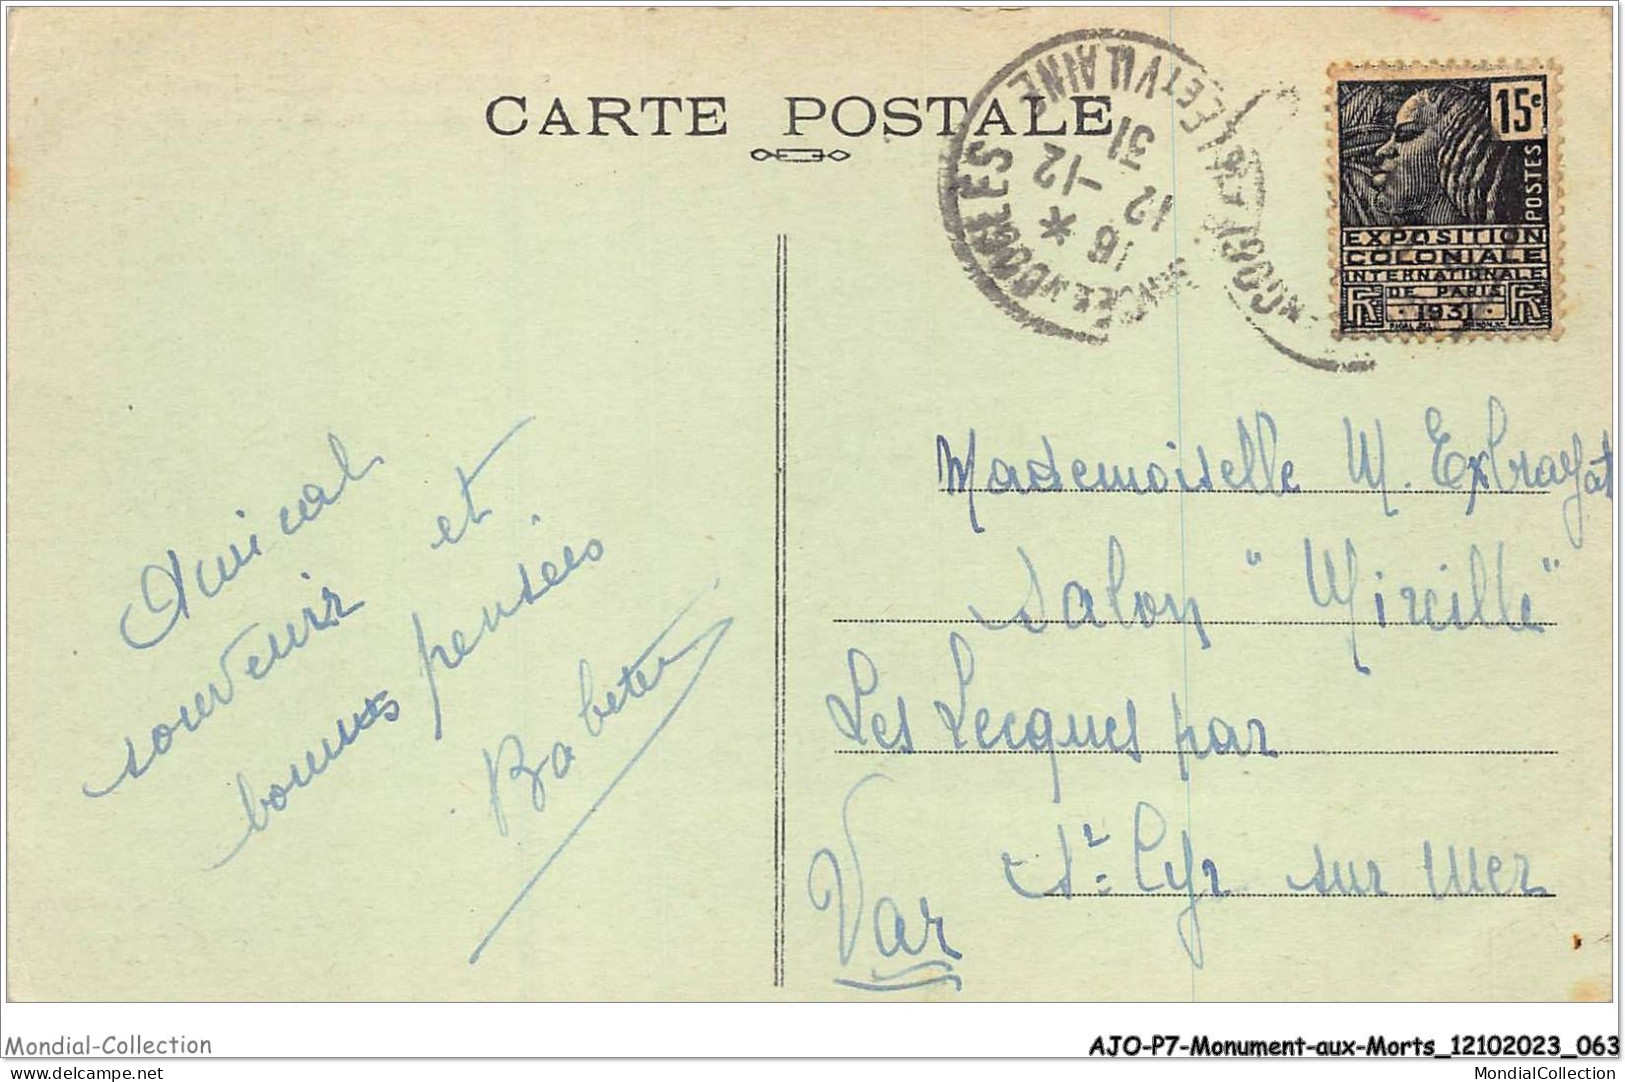 CARTE POSTALE
15c
POSTES
EXPOSITION
COLONIALE
INTERNATIONALE
DE PARIS
RF · 1931 · RF
ILLE ET VILAINE
16 *
12 -12
31
Amical
souvenir et
bonnes pensées
Babeter
Mademoiselle M. Exbrayat
Salon "Mireille"
Les Lecques par
St. Cyr sur Mer
Var
Mondial-Collection
AJO-P7-Monument-aux-Morts_12102023_063
MondialCollection